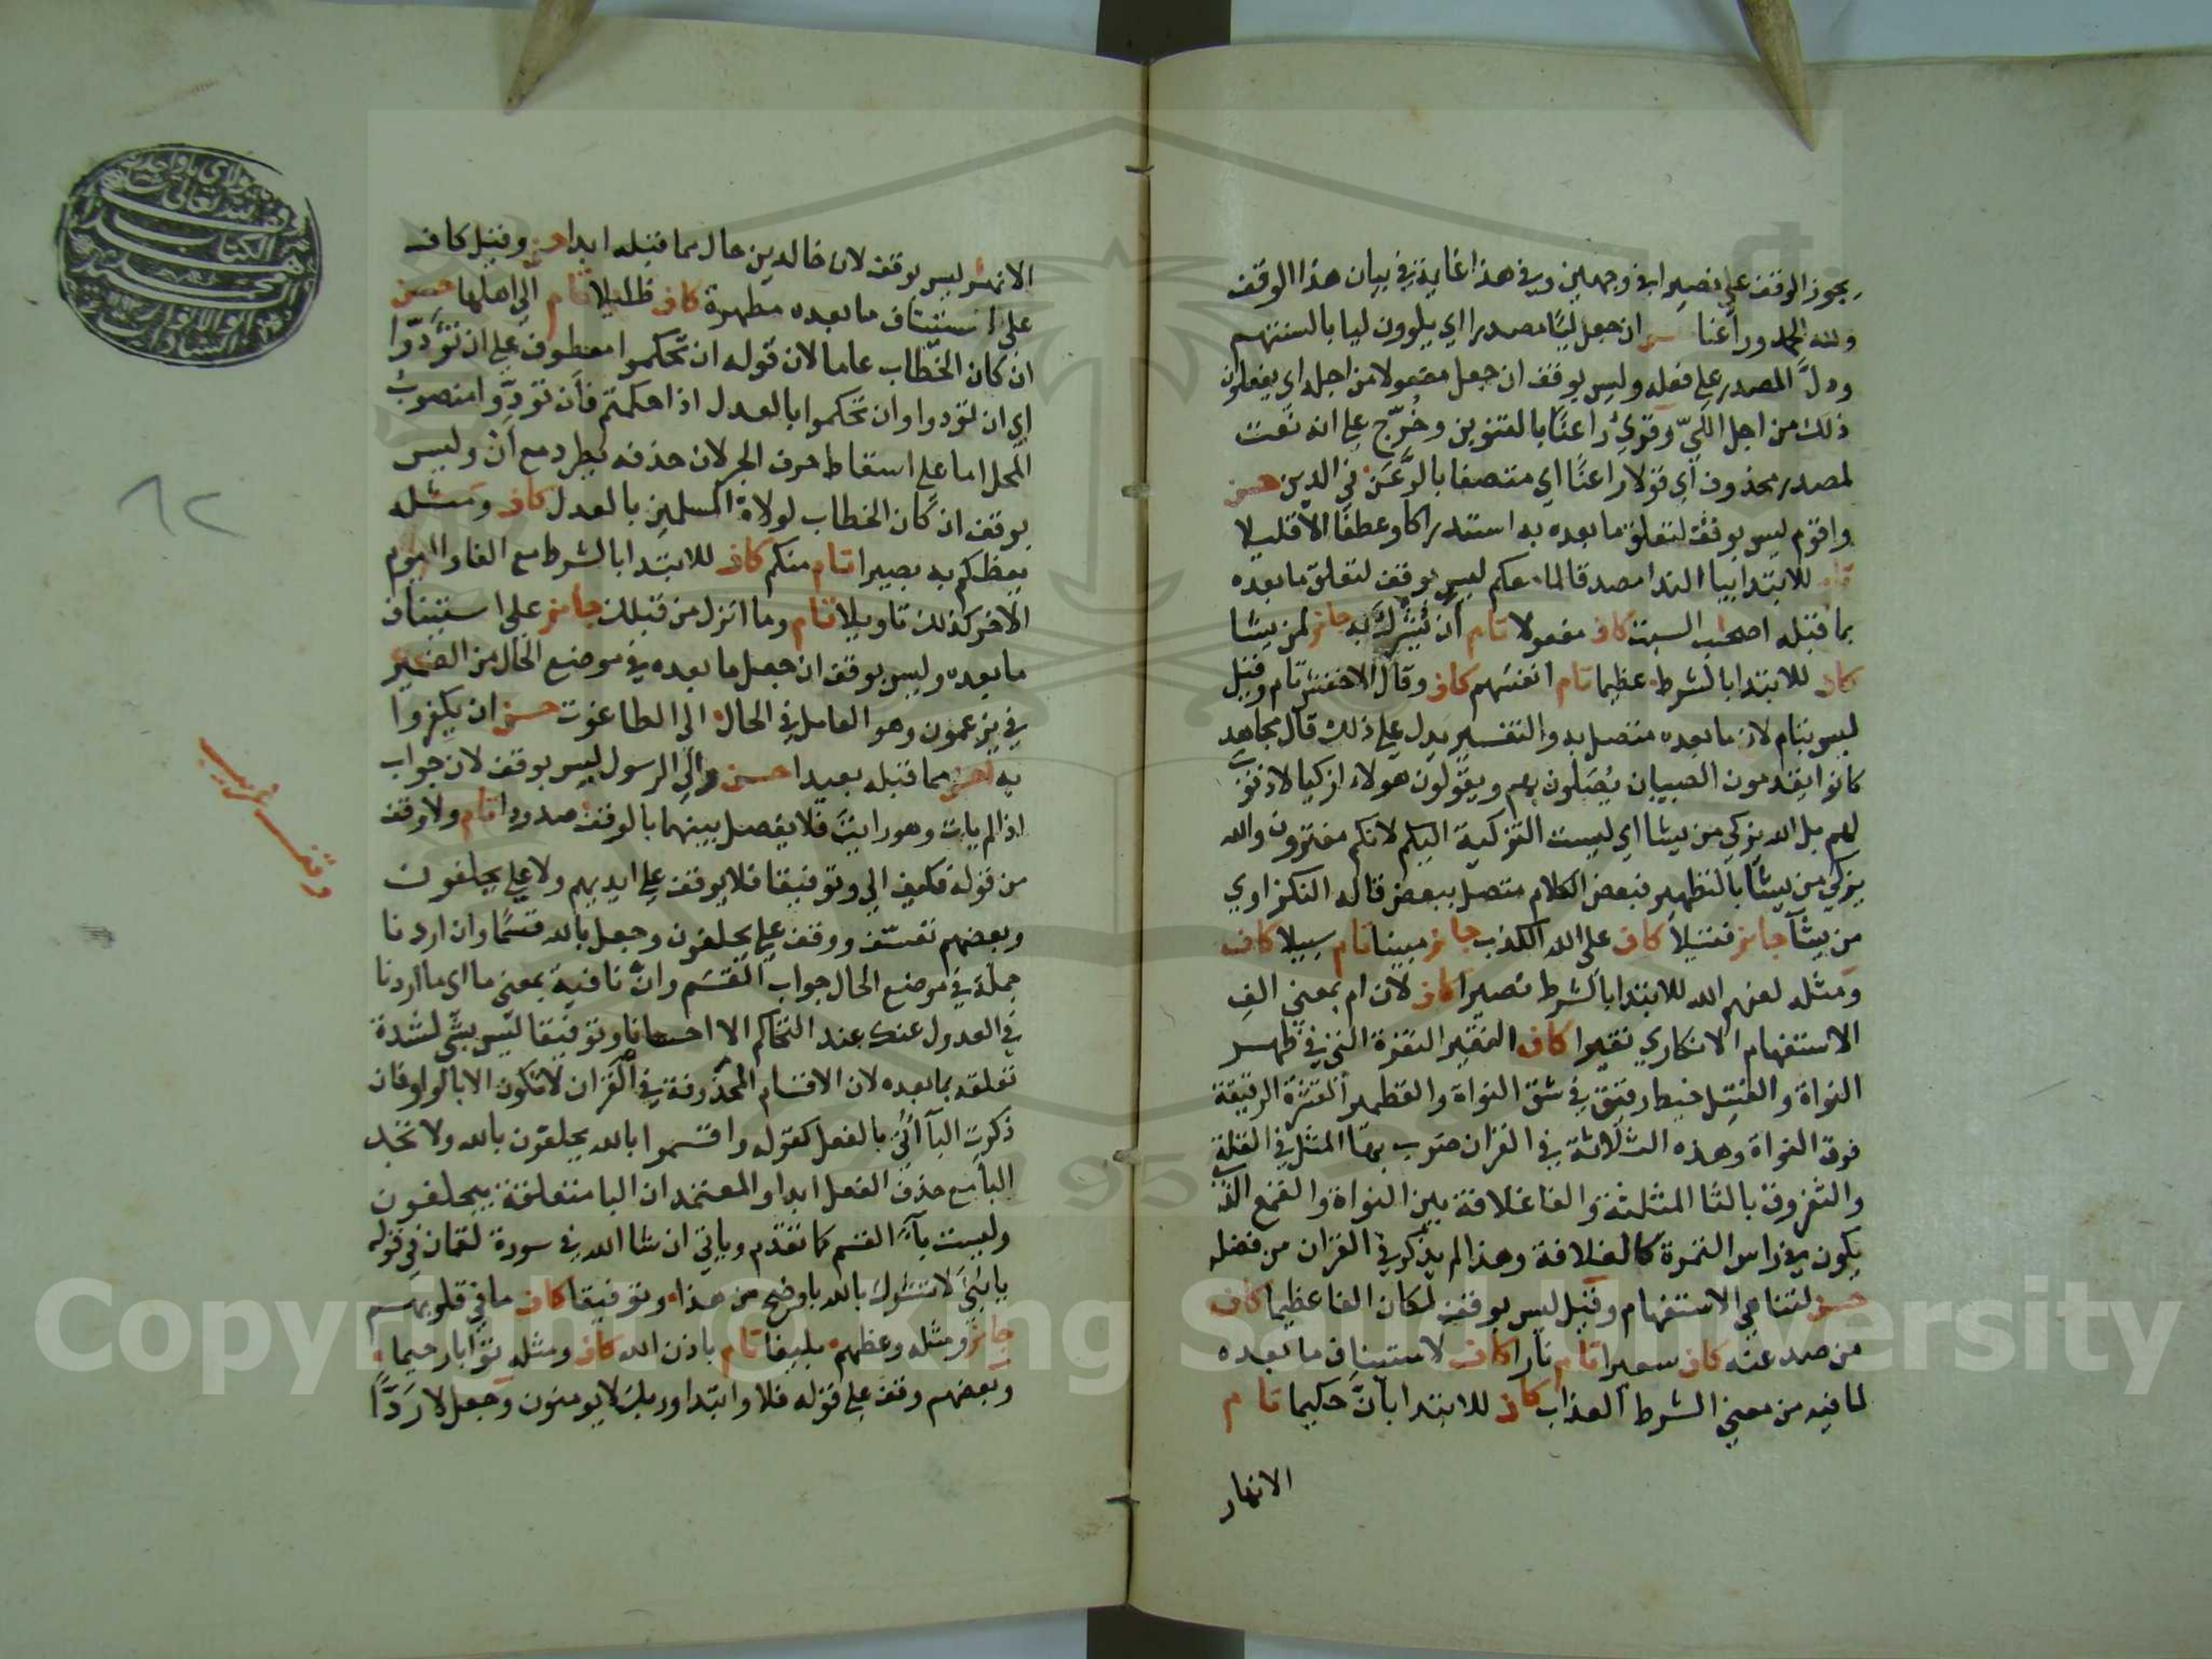 يجوز الوقف على نصيرا في وجهين وفي هذا غاية في بيان هذا الوقف
ولله الحمد وراعنا حسن ان جعل ليًّا مصدرا اي يلوون ليا بالسنتهم
ودلّ المصدر على فعله وليس بوقف ان جعل مفعولا من اجله اي يفعلون
ذلك من اجل اللَّيّ وقرئ راعنًا بالتنوين وخُرّج على انه نعت
لمصدر محذوف اي قولا راعنًا اي متصفا بالرَّعَن في الدين حسن
واقوم ليس بوقف لتعلق ما بعده به استدراكا وعطفًا الا قليلا
تام للابتدا بيا الندا مصدقا لما معكم ليس بوقف لتعلق ما بعده
بما قبله اصحٰب السبت كاف مفعولا تام ان يُشْرَك به جائز لمن يشا
كاف للابتدا بالشرط عظيما تام انفسهم كاف وقال الاخفش تام وقيل
ليس بتام لان ما بعده متصل به والتفسير يدل على ذلك قال مجاهد
كانوا يقدمون الصبيان يُصَلون بهم ويقولون هولاء ازكيا لا ذنوب
لهم بل الله يزكي من يشا اي ليست التزكية اليكم لانكم مفترون والله
يزكي من يشا بالتطهير فبعض الكلام متصل ببعض قاله النكزاوي
من يشآ جائز فتيلا كاف على الله الكذب جائز مبينا تام سبيلا كاف
ومثله لعنهم الله للابتدا بالشرط نصيرا كاف لان ام بمعنى الفِ
الاستفهام الانكاري نقيرا كاف النقير النقرة التي في ظهر
النواة والفتيل خيط رقيق في شق النواة والقطمير القشرة الرقيقة
فوق النواة وهذه الثلاثة في القران ضرب بها المثل في القلة
والثفروق بالثا المثلثة والفا غلافة بين النواة والقمع الذي
يكون في راس التمرة كالغلافة وهذا لم يذكر في القران من فضله
حسن لتناهي الاستفهام وقيل ليس بوقف لمكان الفا عظيما كاف
من صد عنه كاف سعيرا تام نارا كاف لاستيناف ما بعده
لما فيه من معنى الشرط العذاب كاف للابتدا بانَّ حكيما تام
الانهار
الانهٰر ليس بوقف لان خالدين حال مما قبله ابدا حسن وقيل كاف
على استئناف ما بعده مطهرة كاف ظليلا تام الى اهلها حسن
ان كان الخطاب عاما لان قوله ان تحكموا معطوف على ان تؤدّوا
اي ان تؤدوا وان تحكموا بالعدل اذا حكمتم فأن تودّوا منصوب
المحل اما على اسقاط حرف الجر لان حذفه يطرد مع أنْ وليس
بوقف ان كان الخطاب لولاة المسلمين بالعدل كاف ومثله
يعظكم به بصيرا تام منكم كاف للابتدا بالشرط مع الفا واليوم
الاخر كذلك تاويلا تام وما انزل من قبلك جائز على استئناف
ما بعده وليس بوقف ان جعل ما بعده في موضع الحال من الضمير
في يزعمون وهو العامل في الحال الى الطاغوت حسن ان يكفروا
به احسن مما قبله بعيدا حسن والى الرسول ليس بوقف لان جواب
اذا لم يات وهو رايت فلا يفصل بينهما بالوقف صدودا تام ولا وقف
من قوله فكيف الى وتوفيقا فلا يوقف على ايديهم ولا على يحلفون
وبعضهم تعسّف ووقف على يحلفون وجعل بالله قسمًا وان اردنا
جملة في موضع الحال جواب القَسَم وان نافية بمعنى ما اي ما اردنا
في العدول عنك عند التحاكم الا احسانا وتوفيقا ليس بشي لشدة
تعلقه بما بعده لان الاقسام المحذوفة في القران لا تكون الا بالواو فان
ذكرت البآ أُتى بالفعل كقوله واقسموا بالله يحلفون بالله ولا تجد
البا مع حذف الفعل ابدا والمعتمد ان البا متعلقة بيحلفون
وليست بآء القسم كما تقدم وياتي ان شا الله في سورة لقمان في قوله
يا بُنيَّ لا تشرك بالله باوضح من هذا وتوفيقا كاف ما في قلوبهم
جائز ومثله وعظهم بليغا تام باذن الله كاف ومثله توابا رحيما
وبعضهم وقف على قوله فلا وابتدا وربك لا يومنون وجعل لا رَدًّا
وقف غريب
٨٢